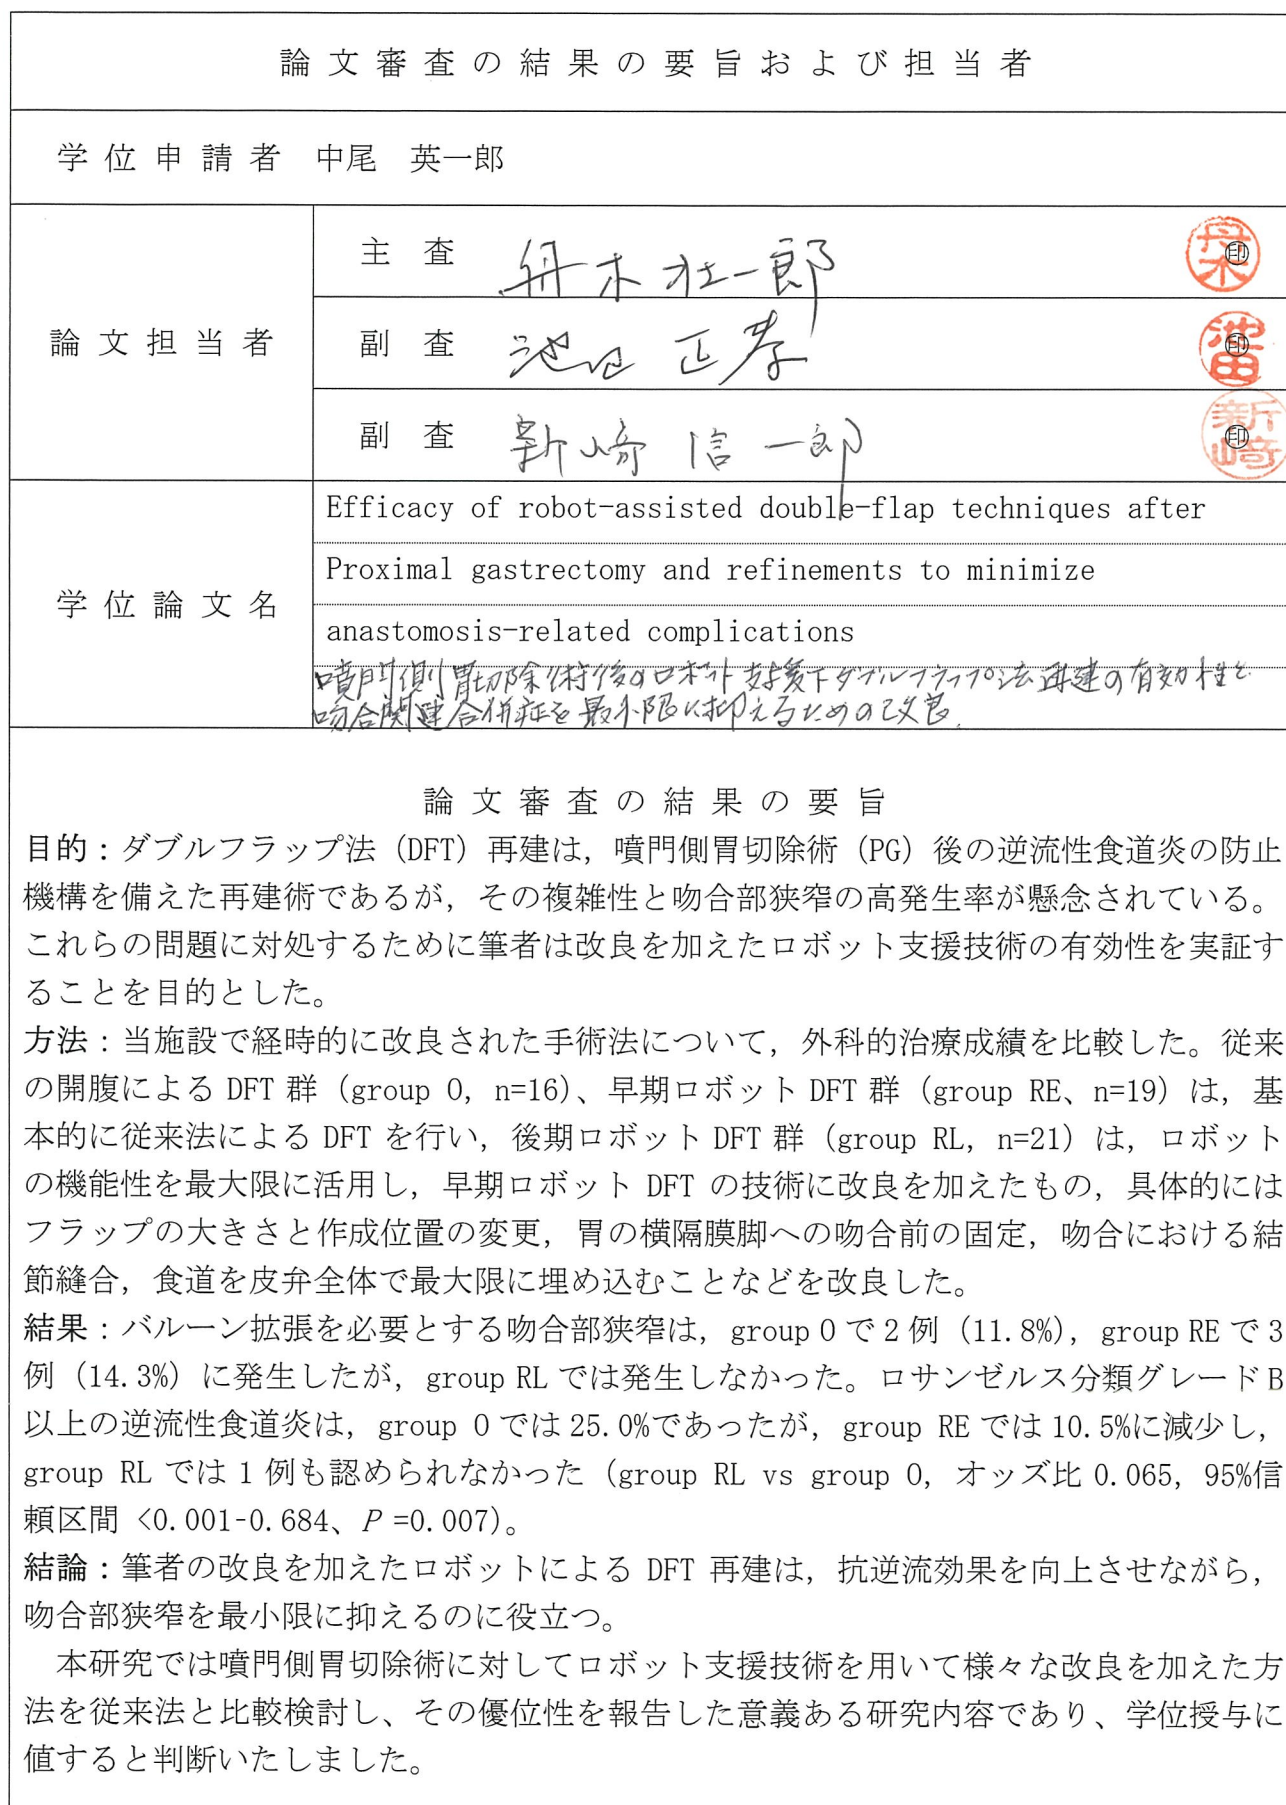 論文審査の結果の要旨および担当者
学位申請者 中尾 英一郎
論文担当者
主査 舟木壮一郎 印
副査 池田 正孝 印
副査 新崎 信一郎 印
学位論文名
Efficacy of robot-assisted double-flap techniques after
Proximal gastrectomy and refinements to minimize
anastomosis-related complications
噴門側胃切除術後のロボット支援下ダブルフラップ法再建の有効性と
吻合関連合併症を最小限に抑えるための改良.
論文審査の結果の要旨
目的：ダブルフラップ法（DFT）再建は，噴門側胃切除術（PG）後の逆流性食道炎の防止
機構を備えた再建術であるが，その複雑性と吻合部狭窄の高発生率が懸念されている。
これらの問題に対処するために筆者は改良を加えたロボット支援技術の有効性を実証す
ることを目的とした。
方法：当施設で経時的に改良された手術法について，外科的治療成績を比較した。従来
の開腹による DFT 群（group O, n=16）、早期ロボット DFT 群（group RE、n=19）は，基
本的に従来法による DFT を行い，後期ロボット DFT 群（group RL, n=21）は，ロボット
の機能性を最大限に活用し，早期ロボット DFT の技術に改良を加えたもの，具体的には
フラップの大きさと作成位置の変更，胃の横隔膜脚への吻合前の固定，吻合における結
節縫合，食道を皮弁全体で最大限に埋め込むことなどを改良した。
結果：バルーン拡張を必要とする吻合部狭窄は，group O で 2 例（11.8%），group RE で 3
例（14.3%）に発生したが，group RL では発生しなかった。ロサンゼルス分類グレード B
以上の逆流性食道炎は，group O では 25.0%であったが，group RE では 10.5%に減少し，
group RL では 1 例も認められなかった（group RL vs group O, オッズ比 0.065, 95%信
頼区間 <0.001-0.684、P =0.007）。
結論：筆者の改良を加えたロボットによる DFT 再建は，抗逆流効果を向上させながら，
吻合部狭窄を最小限に抑えるのに役立つ。
本研究では噴門側胃切除術に対してロボット支援技術を用いて様々な改良を加えた方
法を従来法と比較検討し、その優位性を報告した意義ある研究内容であり、学位授与に
値すると判断いたしました。